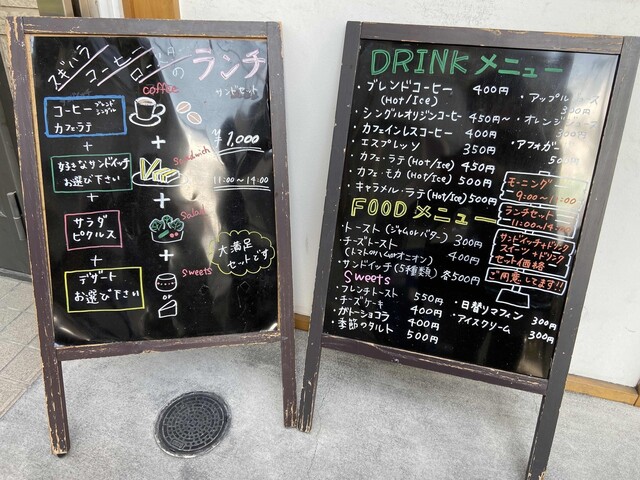 スギハラ
コーヒー
のランチ
サンドセット
coffee
コーヒー ブレンド シングル
カフェ・ラテ
+
+
¥1,000
好きなサンドイッチ
お選び下さい
Sandwich
11:00〜14:00
+
+
サラダ
ピクルス
Salad
+
+
大満足
セットです
デザート
お選び下さい
Sweets
or
DRINK メニュー
・ブレンドコーヒー 400円
(Hot/Ice)
・シングルオリジンコーヒー 450円〜
・カフェインレスコーヒー 400円
・エスプレッソ 350円
・カフェ・ラテ (Hot/Ice) 450円
・カフェ・モカ (Hot/Ice) 500円
・キャラメル・ラテ (Hot/Ice) 500円
・アップルジュース
300円
・オレンジジュース
300円
・アフォガード
500円
モーニング
9:00〜11:00
ランチセット
11:00〜14:00
サンドイッチ+ドリンク
スイーツ+ドリンク
セット価格
ご用意してます!!
FOOD メニュー
・トースト (ジャム or バター) 300円
・チーズトースト
(トマト or ハム or オニオン) 400円
・サンドイッチ (5種類) 各500円
Sweets
・フレンチトースト 550円
・チーズケーキ 400円
・ガトーショコラ 400円
・季節のタルト 500円
・日替りマフィン
300円
・アイスクリーム
300円